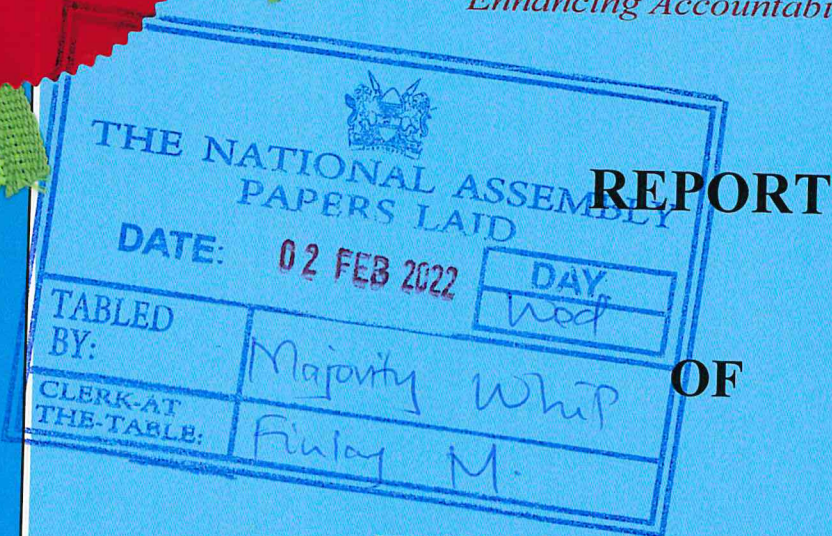 Enhancing Accountabi
THE NATIONAL ASSEMBLY
PAPERS LAID
REPORT
DATE: 02 FEB 2022
DAY
Wed
TABLED
BY:
Majority Whip
OF
CLERK-AT
THE-TABLE:
Finlay M.